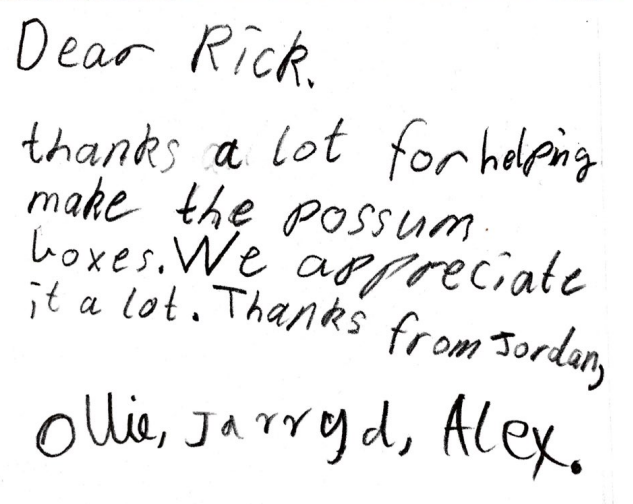 Dear Rick.
thanks a lot for helping
make the possum
boxes. We appreciate
it a lot. Thanks from Jordan,
Ollie, Jarryd, Alex.